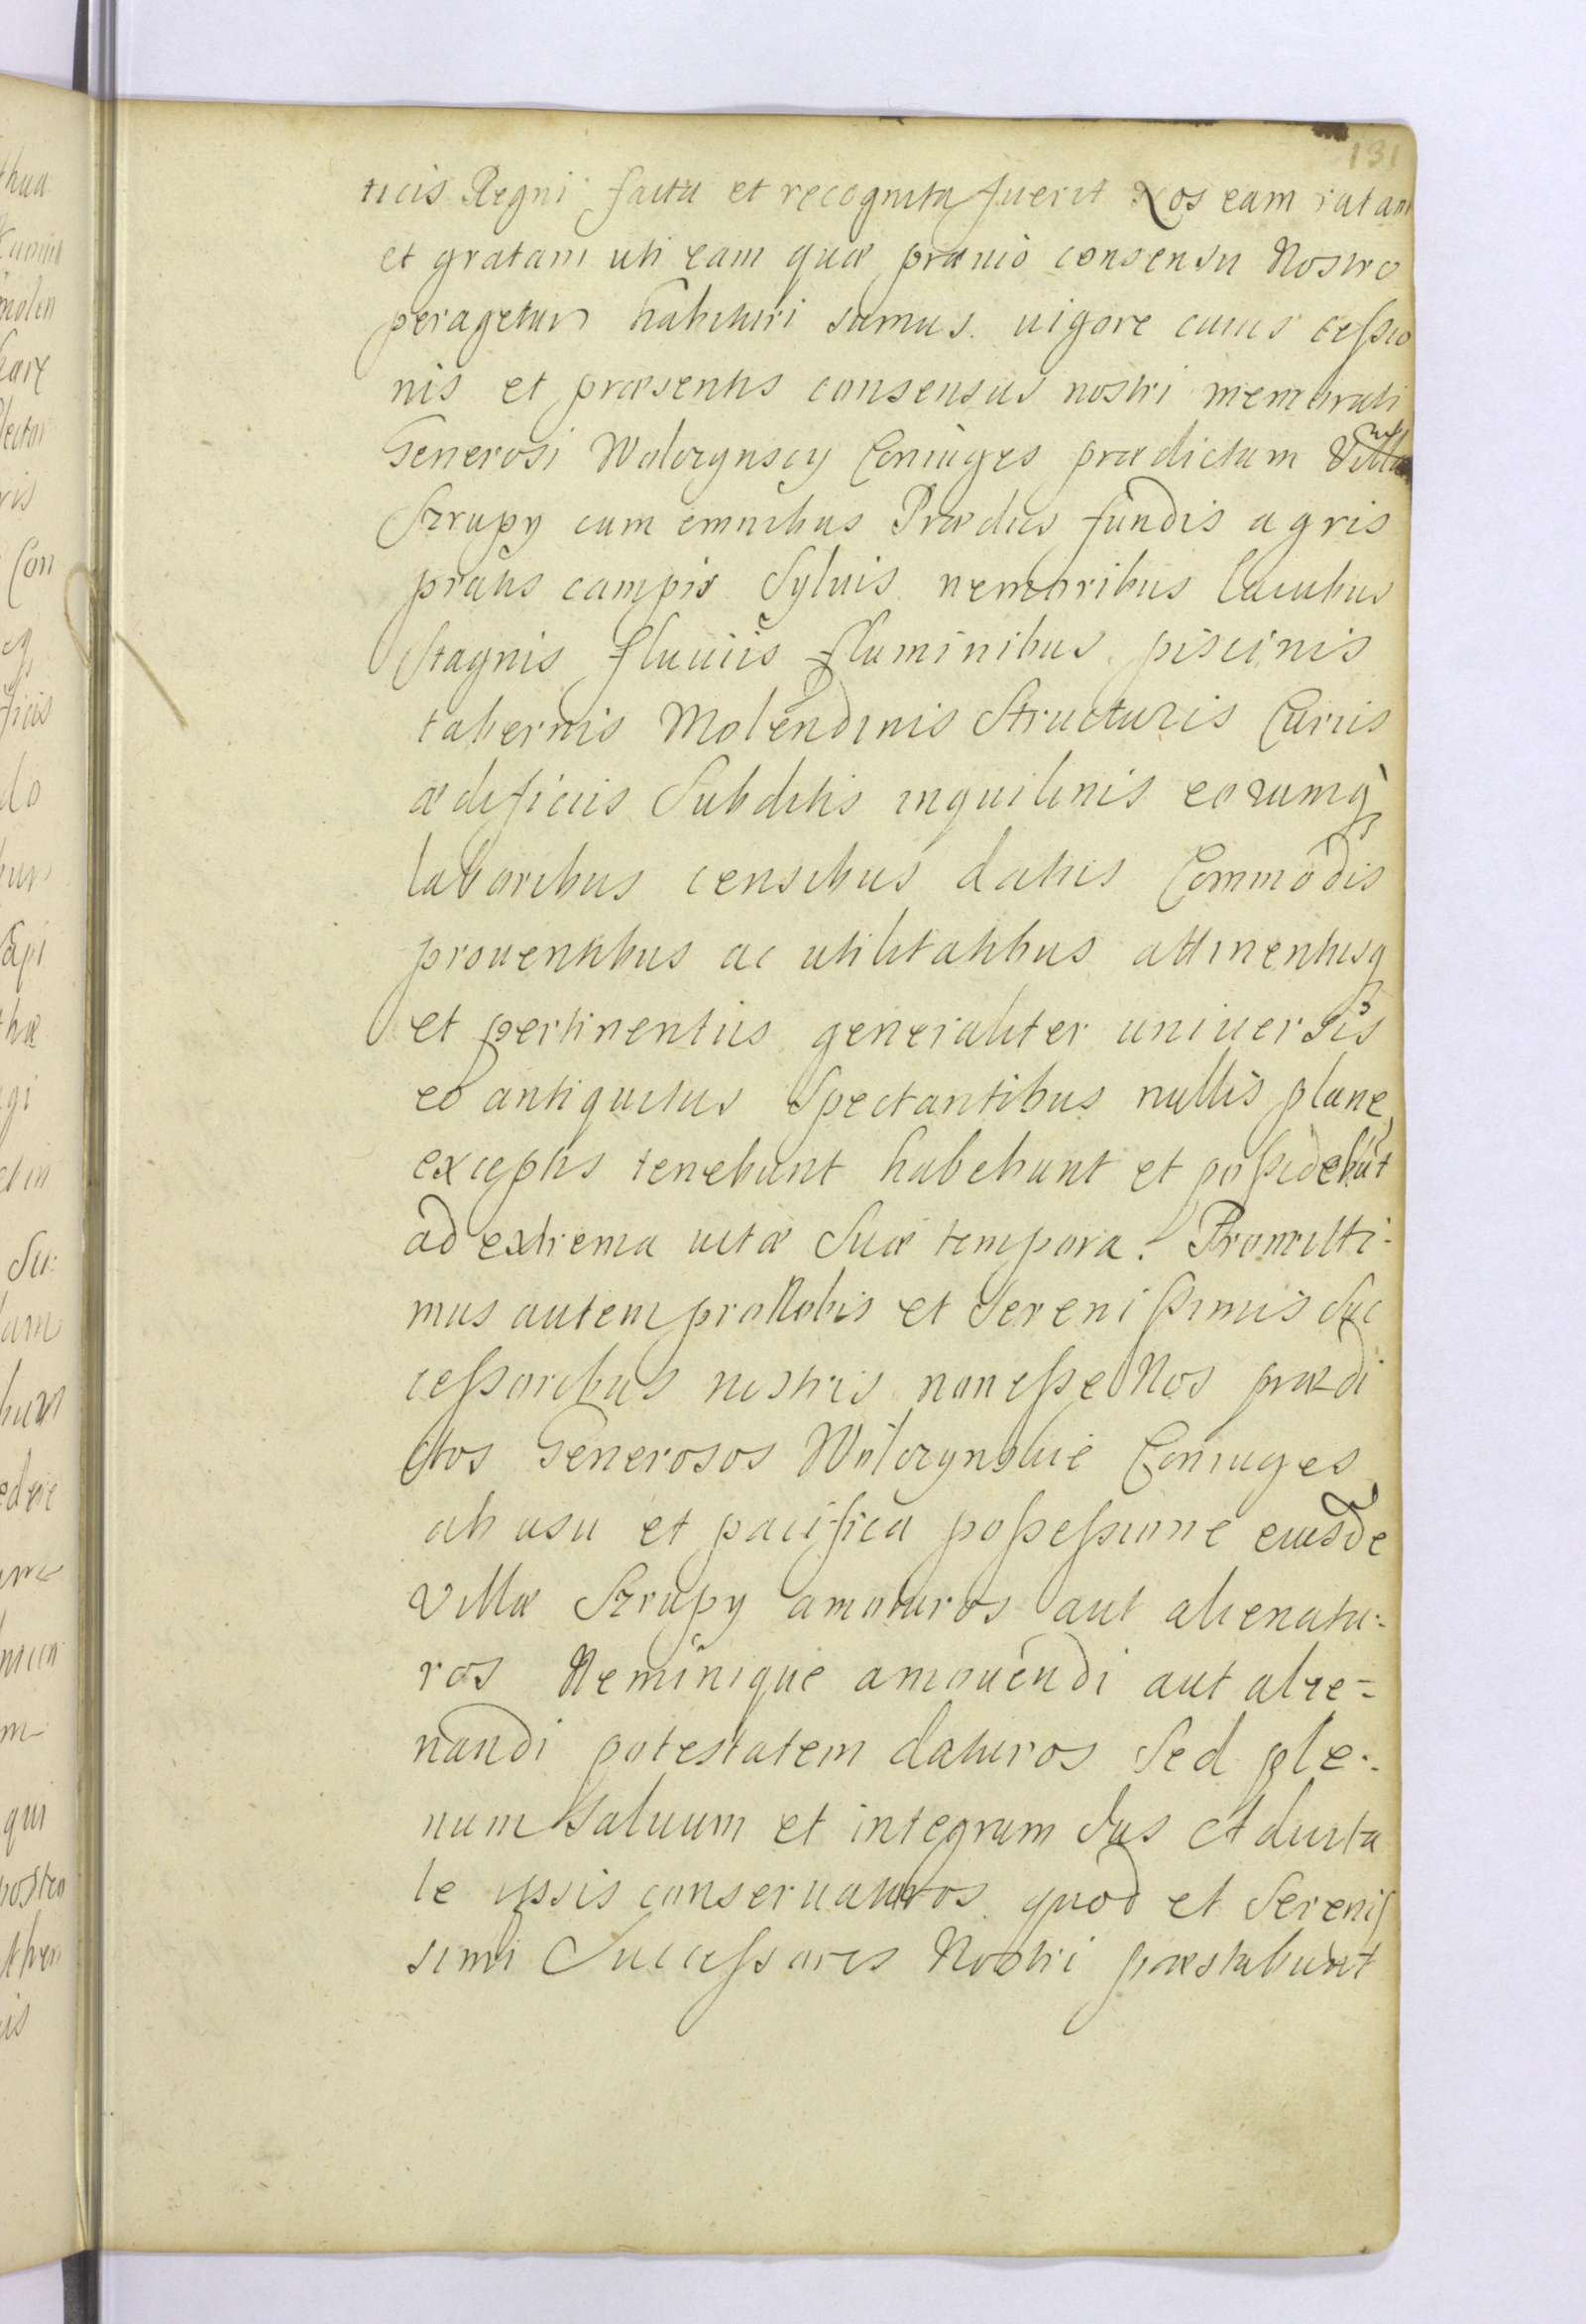 131
ticis Regni facta et recognita fuerit Nos eam ratam
et gratam uti eam quæ præuio consensu Nostro
peragetur habituri sumus. uigore cuius ceſsio
nis et præsentis consensus nostri memorati
Generosi Wolczynscy Coniuges prædictam Villa
Szrupy cum omnibus Prædiis fundis agris
pratis campis Syluis nemoribus lacubus
Stagnis fluuiis fluminibus piscinis
tabernis Molendinis Structuris Curiis
ædificiis Subditis inquilinis eorumq̀
laboribus censibus datiis Commodis
prouentibus ac utilitatibus attinentiisq
et pertinentiis generaliter uniuersis
eo antiquitus Spectantibus nullis plane
exceptis tenebunt habebunt et poſsidebũt
ad extrema uitæ Suæ tempora. Promitti-
mus autem pro Nobis et Sereniſsimis Suc
ceſsoribus nostris non eſse Nos prædi
ctos Generosos Wolczynskie Coniuges
ab usu et pacifica poſseſsione eiusdẽ
Villæ Szrupy amoturos aut alienatu-
ros Neminique amouendi aut alie-
nandi potestatem daturos Sed ple-
num Saluum et integrum Jus Aduita
le ipsis conseruaturos quod et Sereniſ
simi Succeſsores Nostri præstabunt